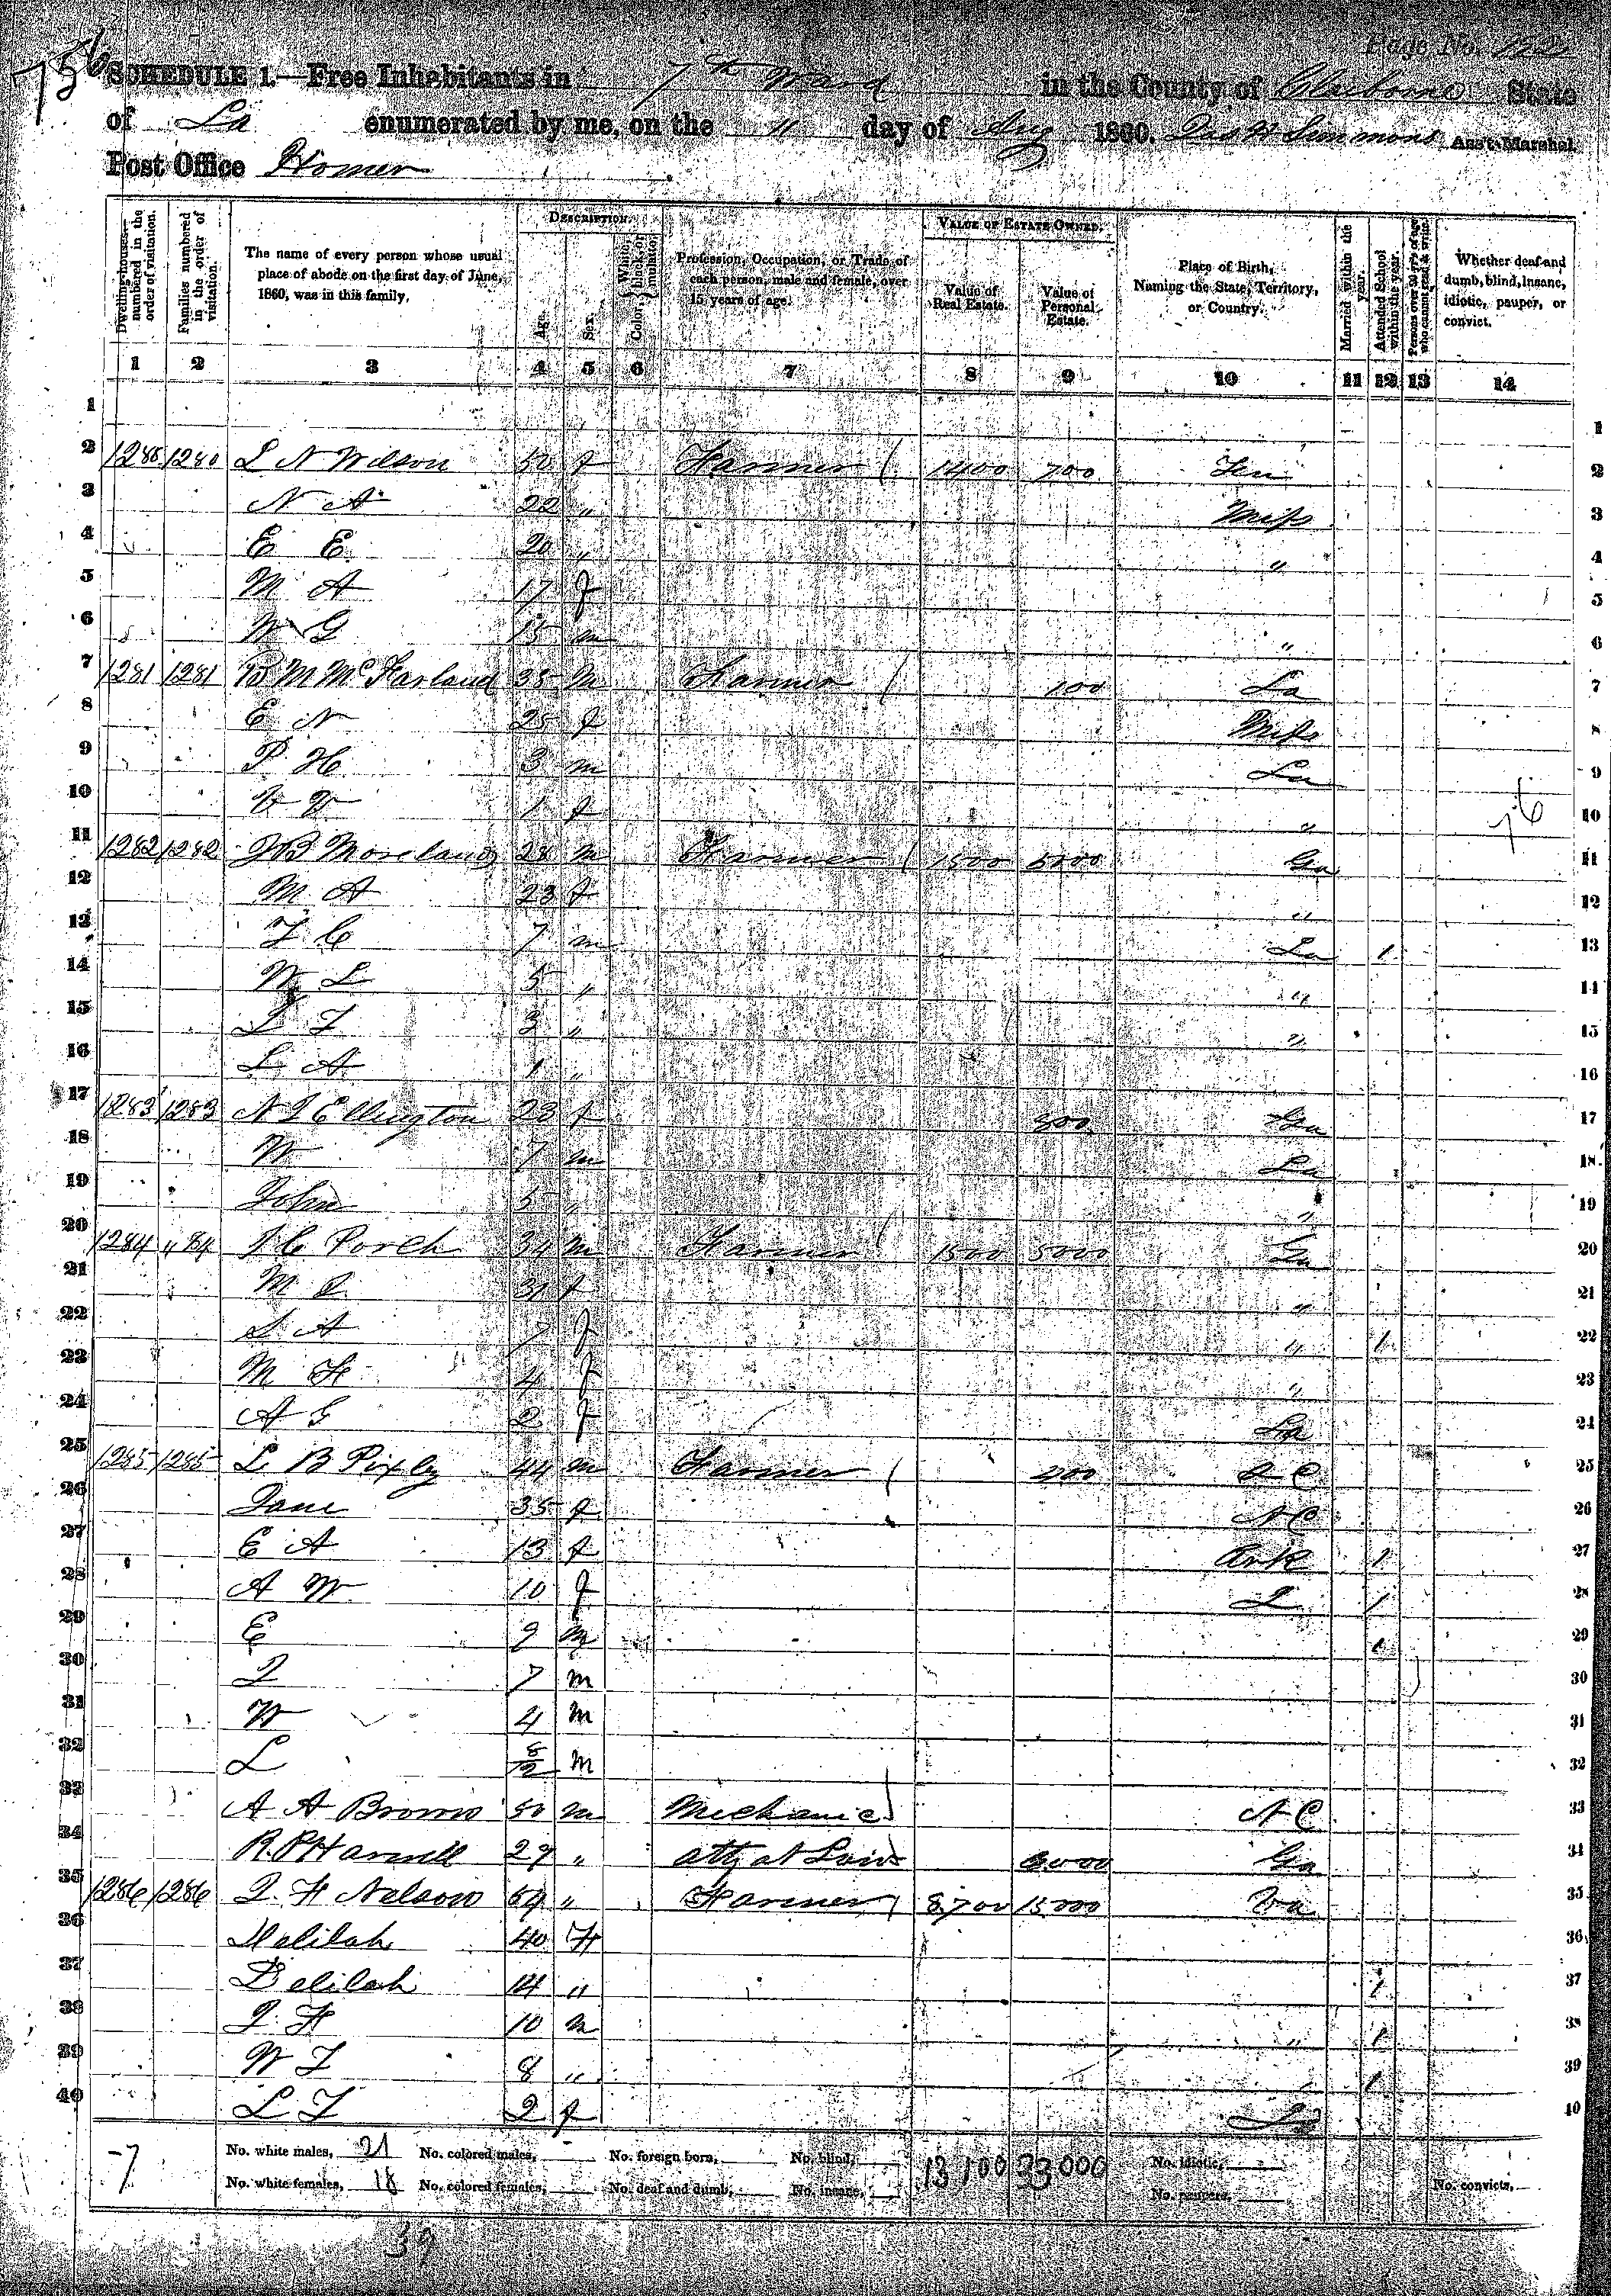 756
Page No. 172
SCHEDULE 1.—Free Inhabitants in 7th Ward in the County of Claiborne State
of La enumerated by me, on the 11 day of Aug 1860. Jas H Simmons Ass't Marshal.
Post Office Homer
Dwelling-houses— numbered in the order of visitation.
Families numbered in the order of visitation.
The name of every person whose usual place of abode on the first day of June, 1860, was in this family.
DESCRIPTION.
Age.
Sex.
Color, White, black, or mulatto.
Profession, Occupation, or Trade of each person, male and female, over 15 years of age.
VALUE OF ESTATE OWNED.
Value of Real Estate.
Value of Personal Estate.
Place of Birth, Naming the State, Territory, or Country.
Married within the year.
Attended School within the year.
Persons over 20 y'rs of age who cannot read & write.
Whether deaf and dumb, blind, insane, idiotic, pauper, or convict.
1 2 3 4 5 6 7 8 9 10 11 12 13 14
1 1
2 1280 1280 L N Wilson 50 f Farmer 1400 700 Ten 2
3 N A 22 " Miss 3
4 E E 20 " " 4
5 M A 17 f 5
6 W G 15 m " 6
7 1281 1281 B M McFarland 35 M Farmer 100 La 7
8 E N 25 f Miss 8
9 P H 3 m La 9
10 V V 1 f " 10
76
11 1282 1282 J B Moreland 28 m Farmer 1500 5000 Ga 11
12 M A 23 f " 12
13 T C 7 m La 1 13
14 W L 5 " " 14
15 L T 3 " " 15
16 L A 1 " 16
17 1283 1283 A J Ellington 23 f 300 Ga 17
18 W 7 m La 18
19 John 5 " " 19
20 1284 "84 J C Porch 34 m Farmer 1500 5000 Ga 20
21 M 31 f " 21
22 S A 7 f " 1 22
23 M F 4 f " 23
24 A G 2 f La 24
25 1285 1285 L B Pixley 44 m Farmer 200 S C 25
26 Jane 35 f N C 26
27 E A 13 f Ark 1 27
28 A W 10 f L 1 28
29 E 9 m 1 29
30 J 7 m 30
31 W 4 m 31
32 L 8/12 m 32
33 A A Brown 50 m Mechanic N C 33
34 R. P Harwell 27 " atty at Law 6000 Ga 34
35 1286 1286 J. H Nelson 59 " Farmer 8700 15000 Va 35
36 Delilah 40 F 36
37 Delilah 14 " 1 37
38 J. H 10 m " 1 38
39 W T 8 " 1 39
40 L T 2 f La 40
-7 No. white males, 21 No. colored males, No. foreign born, No. blind, 13 100 33 000 No. idiotic,
No. white females, 18 No. colored females, No. deaf and dumb, No. insane, No. paupers, No. convicts,
39